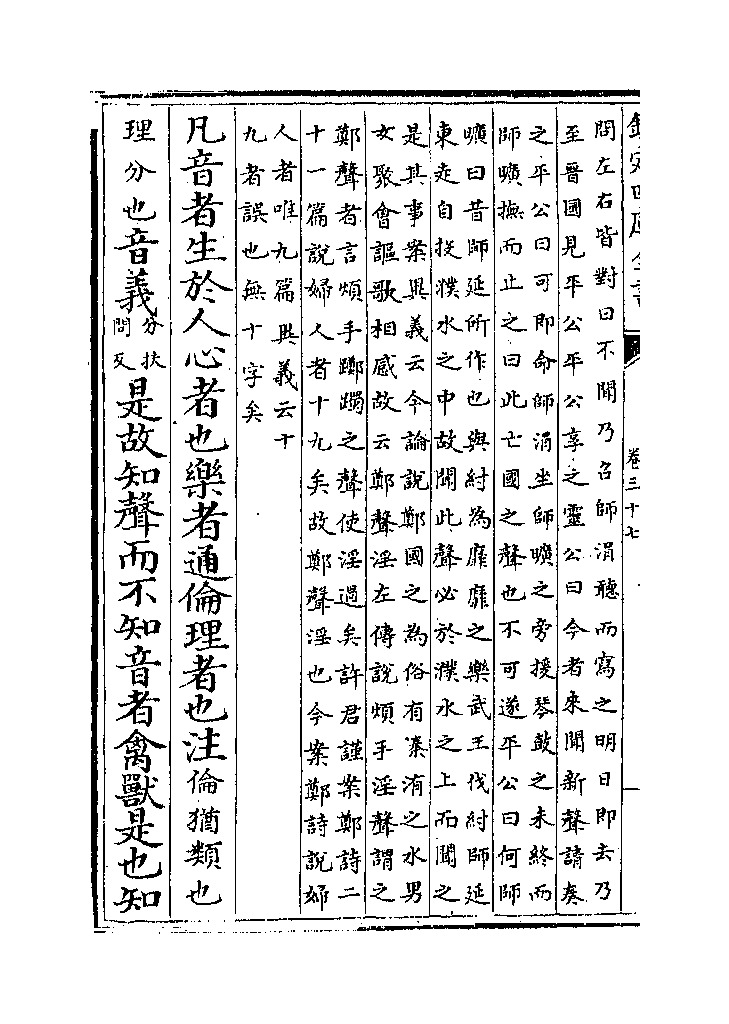 欽定四庫全書 卷三十七
問左右皆對曰不聞乃召師涓聽而寫之明日即去乃
至晉國見平公平公享之靈公曰今者來聞新聲請奏
之平公曰可即命師涓坐師曠之旁援琴鼓之未終而
師曠撫而止之曰此亡國之聲也不可遂平公曰何師
曠曰昔師延所作也與紂為靡靡之樂武王伐紂師延
東走自投濮水之中故聞此聲必於濮水之上而聞之
是其事案異義云今論說鄭國之為俗有溱洧之水男
女聚會謳歌相感故云鄭聲淫左傳說煩手淫聲謂之
鄭聲者言煩手躑躅之聲使淫過矣許君謹案鄭詩二
十一篇說婦人者十九矣故鄭聲淫也今案鄭詩說婦
人者唯九篇異義云十
九者誤也無十字矣
凡音者生於人心者也樂者通倫理者也注倫猶類也
理分也音義分扶問反是故知聲而不知音者禽獸是也知